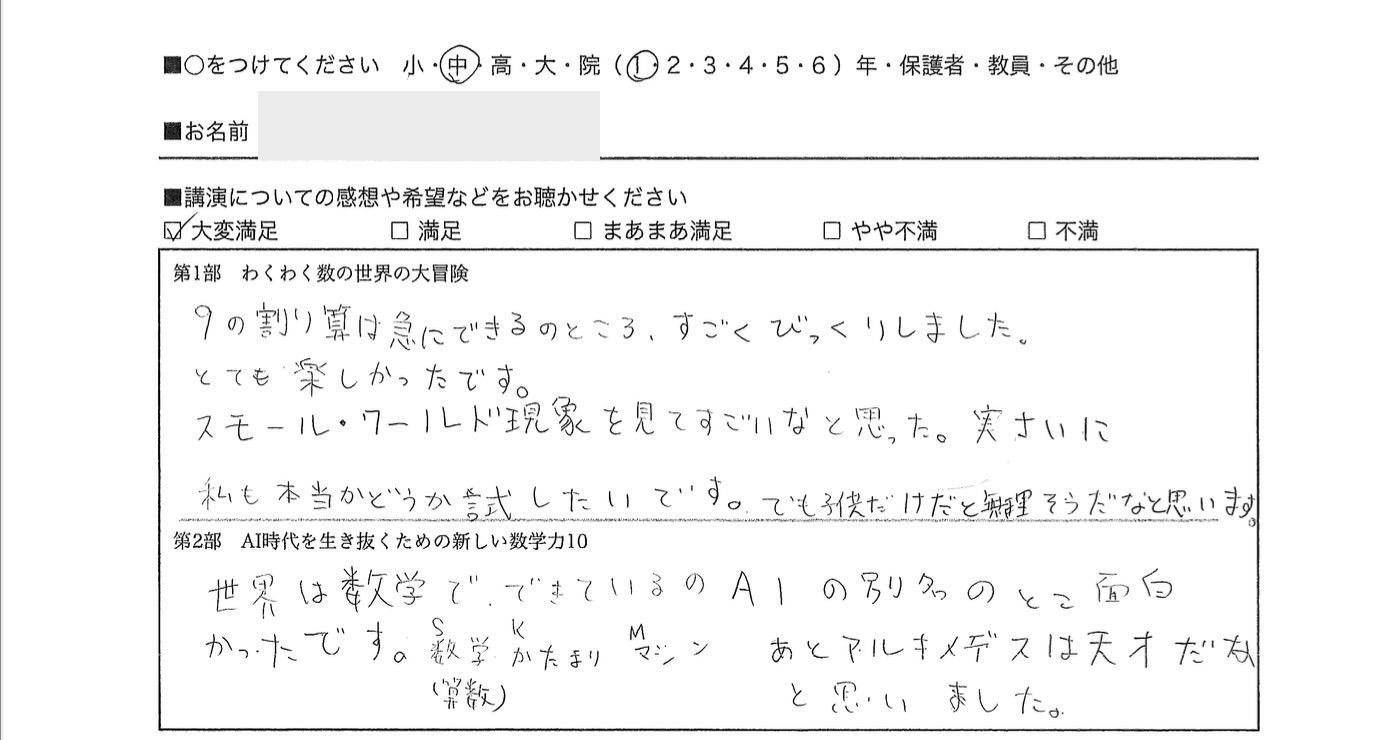 ■○をつけてください 小・中・高・大・院（1・2・3・4・5・6）年・保護者・教員・その他
■お名前
■講演についての感想や希望などをお聴かせください
☑ 大変満足 □ 満足 □ まあまあ満足 □ やや不満 □ 不満
第1部 わくわく数の世界の大冒険
9の割り算は急にできるのところ、すごくびっくりしました。
とても楽しかったです。
スモール・ワールド現象を見てすごいなと思った。実さいに
私も本当かどうか試したいです。でも子供だけだと無理そうだなと思います。
第2部 AI時代を生き抜くための新しい数学力10
世界は数学で、できているの AI の のとこ面白
かったです。 S数学 Kかたまり Mマシン あとアルキメデスは天才だな
(算数) と思いました。